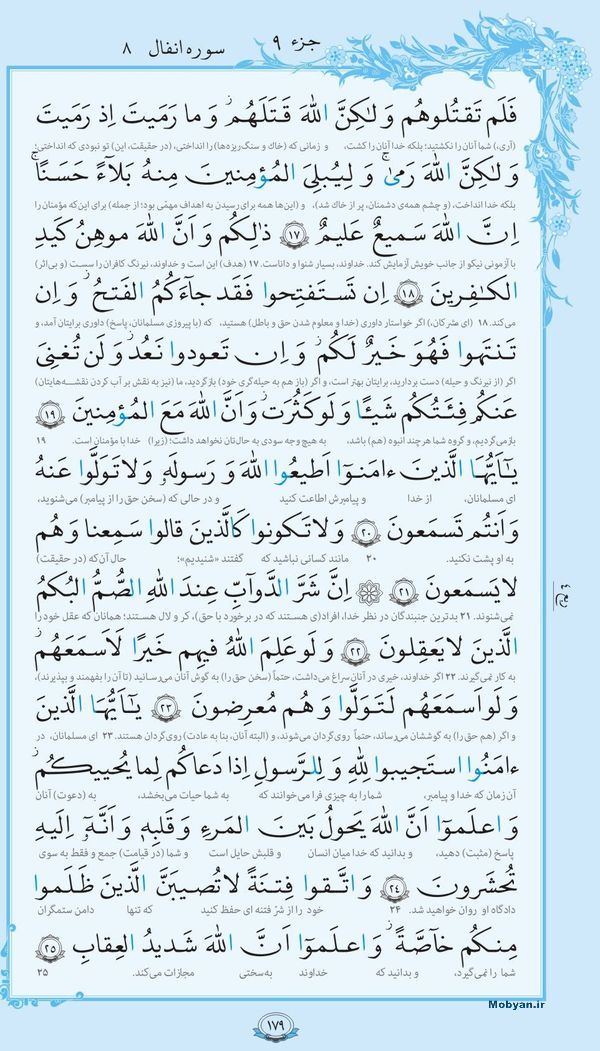 جزء ۹
سوره انفال ۸
فَلَم تَقتُلوهُم وَلٰكِنَّ اللهَ قَتَلَهُم ۚ وَما رَمَيتَ اِذ رَمَيتَ
(آری،) شما آنان را نکشتید؛ بلکه خدا آنان را کشت، و زمانی که (خاک و سنگ‌ریزه‌ها) را انداختی، (در حقیقت، این) تو نبودی که انداختی؛
وَلٰكِنَّ اللهَ رَمىٰ ۚ وَلِيُبلِىَ المُؤمِنينَ مِنهُ بَلآءً حَسَنًا ۚ
بلکه خدا انداخت، (و چشم همه‌ی دشمنان، پر از خاک شد)، و (این‌ها همه برای رسیدن به اهداف مهمّی بود؛ از جمله) برای این‌که مؤمنان را
اِنَّ اللهَ سَميعٌ عَليمٌ ﴿١٧﴾ ذٰلِكُم وَاَنَّ اللهَ موهِنُ كَيدِ
با آزمونی نیکو از جانب خویش آزمایش کند. خداوند، بسیار شنوا و داناست. ۱۷ (هدف) این است و خداوند، نیرنگ کافران را سست (و بی‌اثر)
الكٰفِرينَ ﴿١٨﴾ اِن تَستَفتِحوا فَقَد جآءَكُمُ الفَتحُ ۖ وَاِن
می‌کند. ۱۸ (ای مشرکان،) اگر خواستار داوری (خدا و معلوم شدن حق و باطل) هستید، که (با پیروزی مسلمانان، پاسخ) داوری برایتان آمد، و
تَنتَهوا فَهُوَ خَيرٌ لَكُم ۖ وَاِن تَعودوا نَعُد وَلَن تُغنِىَ
اگر (از نیرنگ و حیله) دست بردارید، برایتان بهتر است، و اگر (باز هم به حیله‌گری خود) بازگردید، ما (نیز به نقش بر آب کردن نقشه‌هایتان)
عَنكُم فِئَتُكُم شَيئًا وَلَو كَثُرَت وَاَنَّ اللهَ مَعَ المُؤمِنينَ ﴿١٩﴾
بازمی‌گردیم، و گروه شما هرچند انبوه (هم) باشد، به هیچ وجه سودی به حال‌تان نخواهد داشت؛ (زیرا) خدا با مؤمنان است. ۱۹
يٰاَيُّهَا الَّذينَ ءامَنوا اَطيعُوا اللهَ وَرَسولَهُ وَلا تَوَلَّوا عَنهُ
ای مسلمانان، از خدا و پیامبرش اطاعت کنید و در حالی که (سخن حق را از پیامبر) می‌شنوید،
وَاَنتُم تَسمَعونَ ﴿٢٠﴾ وَلا تَكونوا كَالَّذينَ قالوا سَمِعنا وَهُم
به او پشت نکنید. ۲۰ مانند کسانی نباشید که گفتند «شنیدیم»؛ حال آن‌که (در حقیقت)
لا يَسمَعونَ ﴿٢١﴾ اِنَّ شَرَّ الدَّوآبِّ عِندَ اللهِ الصُّمُّ البُكمُ
نمی‌شنوند. ۲۱ بدترین جنبندگان در نظر خدا، افراد(ی هستند که در برخورد با حق)، کر و لال هستند؛ همانان که عقل خود را
الَّذينَ لا يَعقِلونَ ﴿٢٢﴾ وَلَو عَلِمَ اللهُ فيهِم خَيرًا لَاَسمَعَهُم ۖ
به کار نمی‌گیرند. ۲۲ اگر خداوند، خیری در آنان سراغ می‌داشت، حتماً (سخن حق را) به گوش آنان می‌رسانید (تا آن را بفهمند و بپذیرند)،
وَلَو اَسمَعَهُم لَتَوَلَّوا وَهُم مُعرِضونَ ﴿٢٣﴾ يٰاَيُّهَا الَّذينَ
و اگر (هم حق را) به گوششان می‌رساند، حتماً روی‌گردان می‌شوند، و (البته آنان، بنا به عادت) روی‌گردان هستند. ۲۳ ای مسلمانان، در
ءامَنُوا استَجيبوا لِلّٰهِ وَلِلرَّسولِ اِذا دَعاكُم لِما يُحييكُم ۖ
آن زمان که خدا و پیامبر، شما را به چیزی فرا می‌خوانند که به شما حیات می‌بخشد، به (دعوت) آنان
وَاعلَموا اَنَّ اللهَ يَحولُ بَينَ المَرءِ وَقَلبِهِ وَاَنَّهُ اِلَيهِ
پاسخ (مثبت) دهید، و بدانید که خدا میان انسان و قلبش حایل است و شما (در قیامت) جمع و فقط به سوی
تُحشَرونَ ﴿٢٤﴾ وَاتَّقوا فِتنَةً لا تُصيبَنَّ الَّذينَ ظَلَموا
دادگاه او روان خواهید شد. ۲۴ خود را از شرّ فتنه‌ای حفظ کنید که تنها دامن ستمگران
مِنكُم خآصَّةً ۖ وَاعلَموا اَنَّ اللهَ شَديدُ العِقابِ ﴿٢٥﴾
شما را نمی‌گیرد، و بدانید که خداوند به‌سختی مجازات می‌کند. ۲۵
۱۷۹
Mobyan.ir